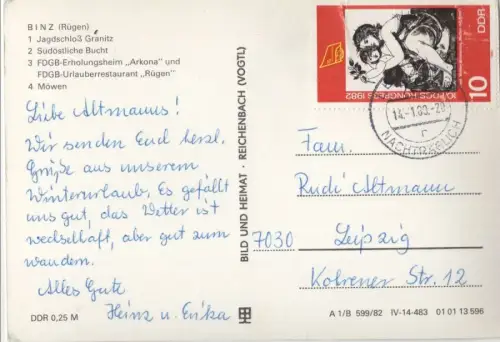 BINZ (Rügen)
1 Jagdschloß Granitz
2 Südöstliche Bucht
3 FDGB-Erholungsheim „Arkona" und
FDGB-Urlauberrestaurant „Rügen"
4 Möwen
Liebe Altmanns!
Wir senden Euch herzl.
Grüße aus unserem
Winterurlaub. Es gefällt
uns gut, das Wetter ist
wechselhaft, aber gut zum
wandern.
Alles Gute
Heinz u. Erika
DDR 0,25 M
BILD UND HEIMAT · REICHENBACH (VOGTL)
10. FDGB-KONGRESS 1982
DDR
10
NACHTRÄGLICH
Fam.
Rudi Altmann
7030 Leipzig
Kohrener Str. 12
A 1/B 599/82 IV-14-483 01 01 13 596